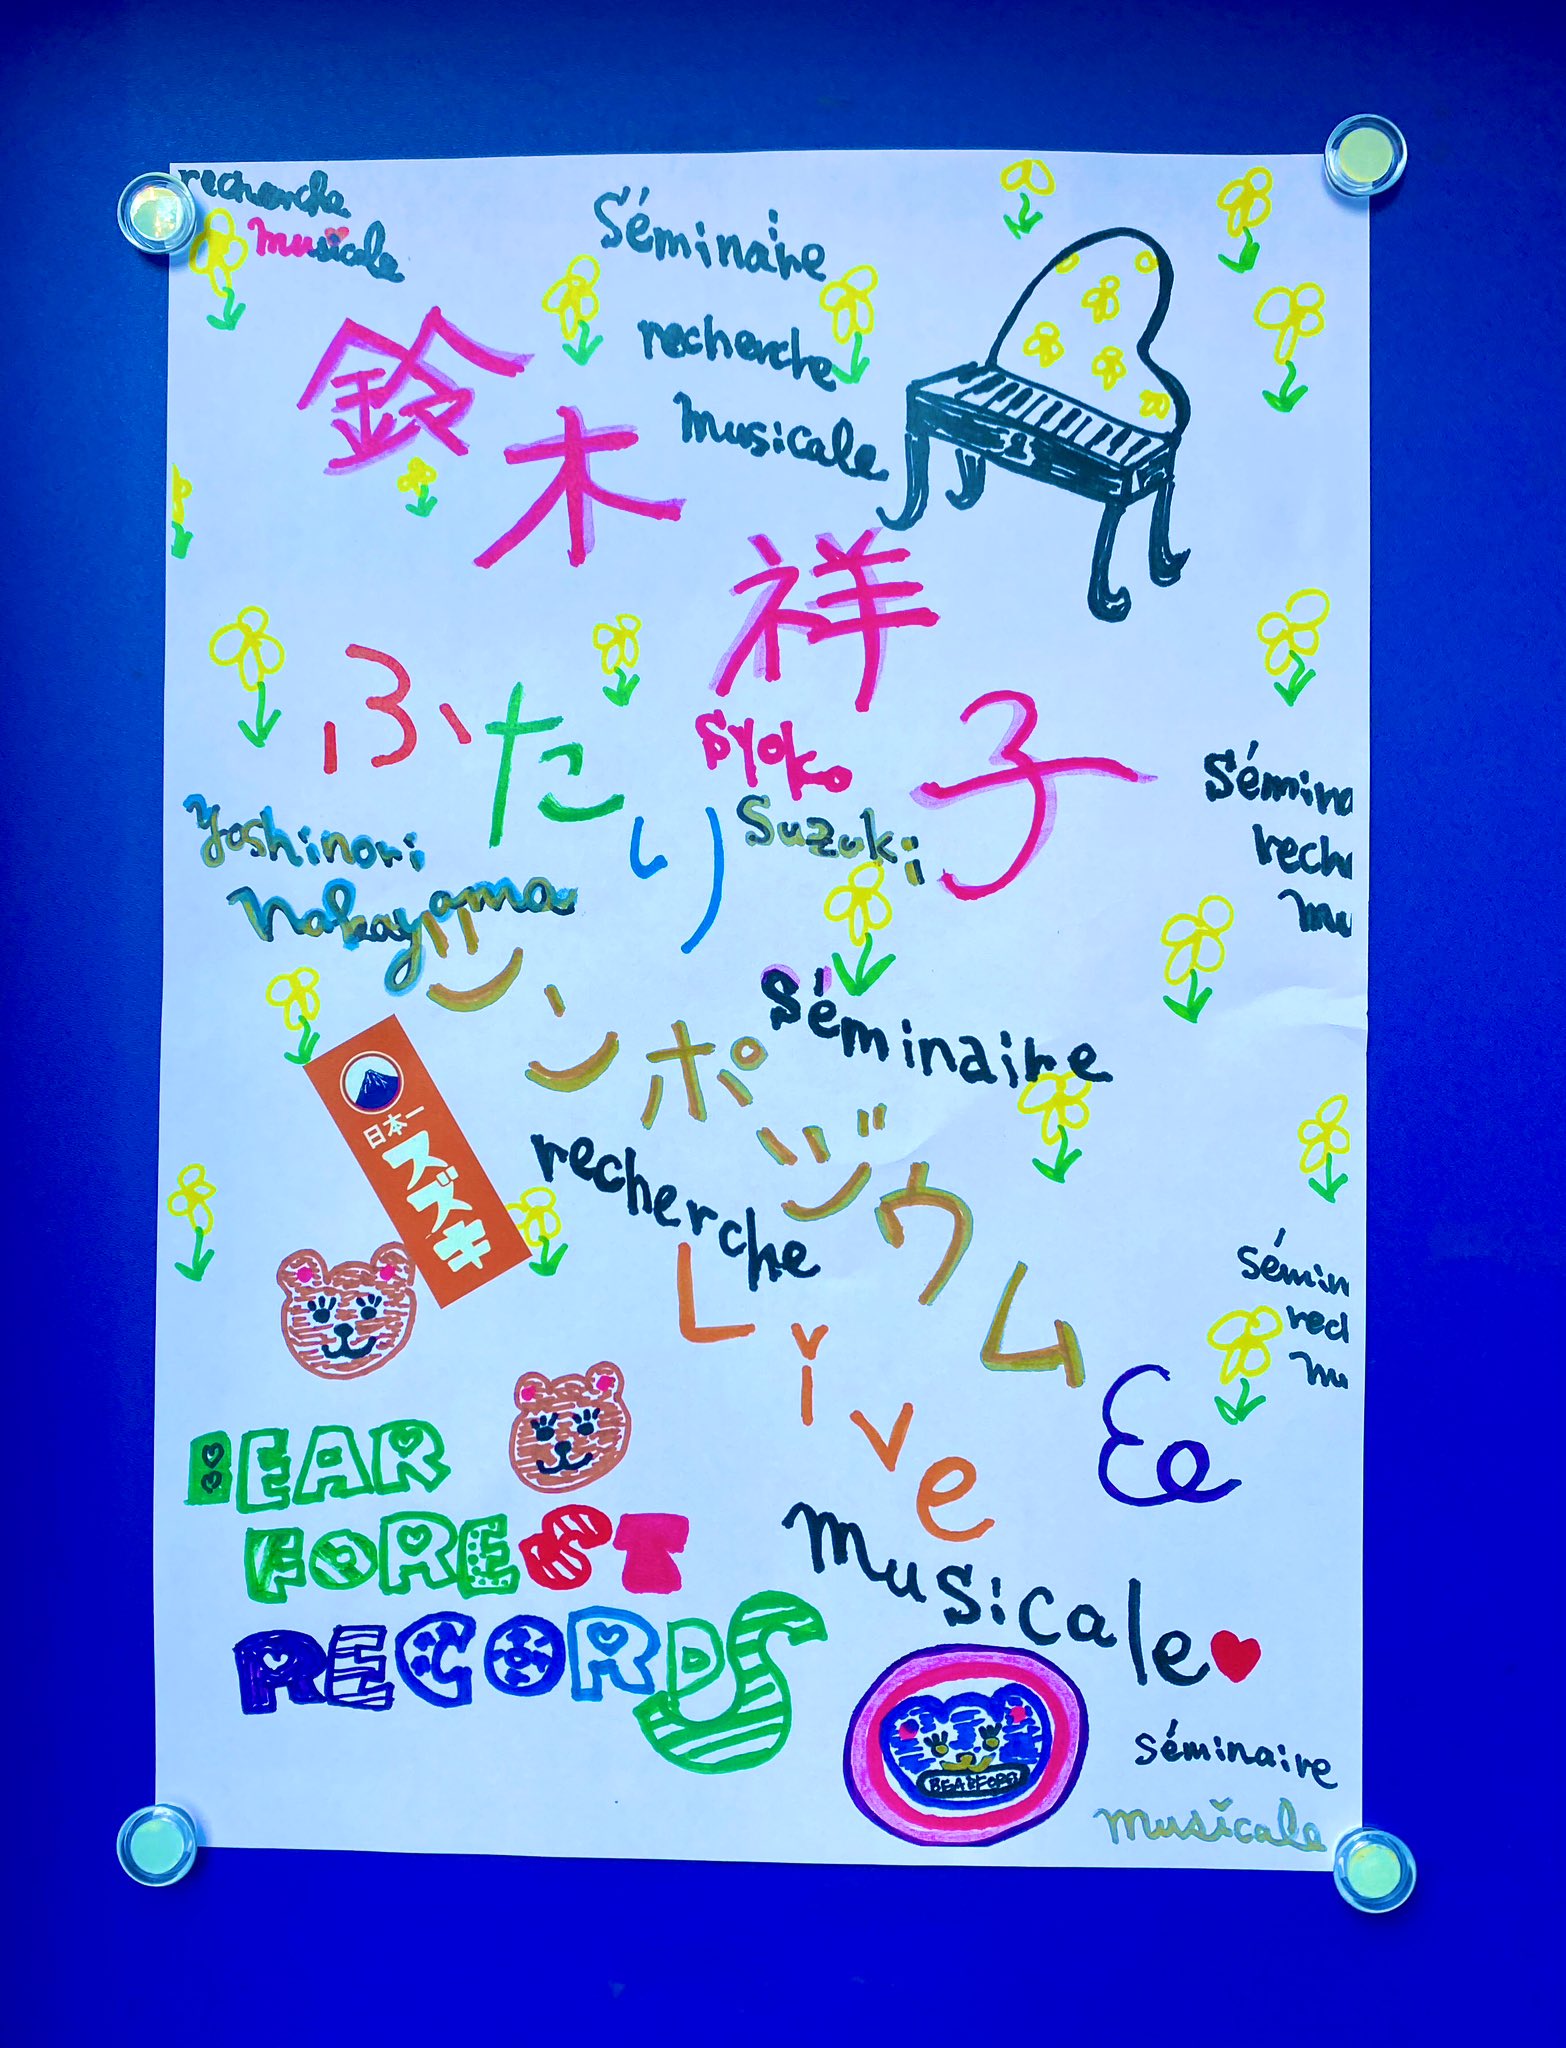 recherche
musicale
Séminaire
recherche
musicale
鈴木祥子
Syoko
Suzuki
ふたり
Yoshinori
Nakayama
シンポジウム
Sémina
rech
mu
Séminaire
recherche
musicale
日本一
スズキ
Live
Sémin
rech
mu
BEAR
FOREST
RECORDS
séminaire
musicale